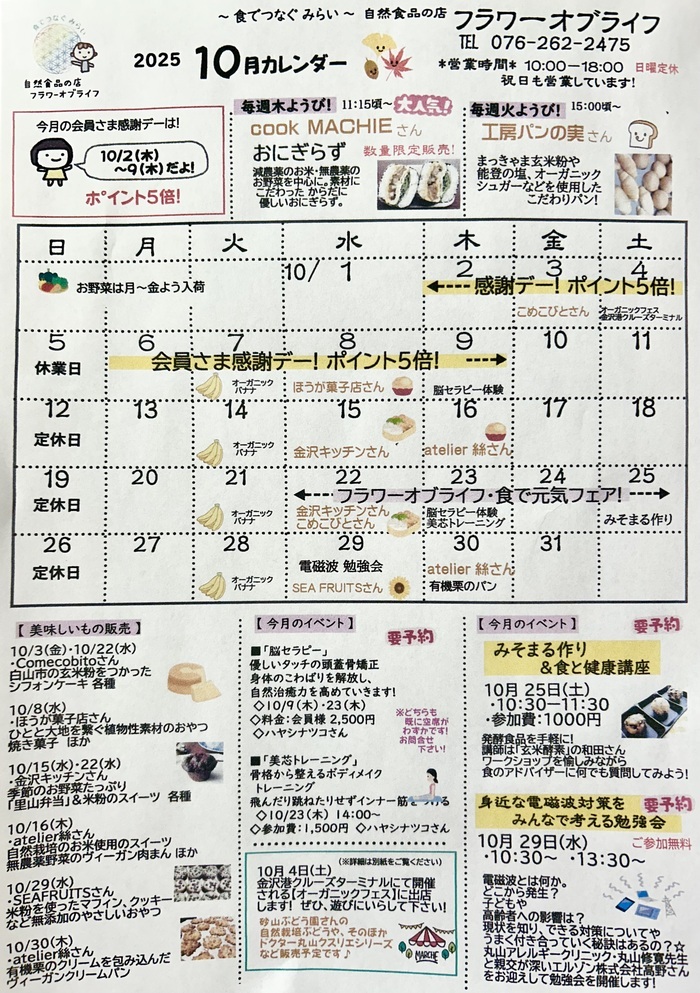 〜 食でつなぐ みらい 〜 自然食品の店 フラワーオブライフ
TEL 076-262-2475
食でつなぐ みらい
自然食品の店
フラワーオブライフ
2025 10月カレンダー
*営業時間* 10:00ー18:00 日曜定休
祝日も営業しています!
今月の会員さま感謝デーは!
10/2(木)
〜9(木)だよ!
ポイント5倍!
毎週木ようび! 11:15頃〜 大人気!
cook MACHIEさん
おにぎらず 数量限定販売!
減農薬のお米・無農薬の
お野菜を中心に。素材に
こだわった からだに
優しいおにぎらず。
毎週火ようび! 15:00頃〜
工房パンの実さん
まっきゃま玄米粉や
能登の塩、オーガニック
シュガーなどを使用した
こだわりパン!
日 月 火 水 木 金 土
お野菜は月〜金よう入荷
10/1 2 3 4
感謝デー! ポイント5倍!
こめこびとさん
オーガニックフェス
金沢港クルーズターミナル
5 6 7 8 9 10 11
休業日
会員さま感謝デー! ポイント5倍!
オーガニック
バナナ
ほうが菓子店さん
脳セラピー体験
12 13 14 15 16 17 18
定休日
オーガニック
バナナ
金沢キッチンさん
atelier 絲さん
19 20 21 22 23 24 25
定休日
フラワーオブライフ・食で元気フェア!
オーガニック
バナナ
金沢キッチンさん
こめこびとさん
脳セラピー体験
美芯トレーニング
みそまる作り
26 27 28 29 30 31
定休日
オーガニック
バナナ
電磁波 勉強会
SEA FRUITSさん
atelier 絲さん
有機栗のパン
【 美味しいもの販売 】
10/3(金)・10/22(水)
・Comecobitoさん
白山市の玄米粉をつかった
シフォンケーキ 各種
10/8(水)
・ほうが菓子店さん
ひとと大地を繋ぐ植物性素材のおやつ
焼き菓子 ほか
10/15(水)・22(水)
・金沢キッチンさん
季節のお野菜たっぷり
「里山弁当」&米粉のスイーツ 各種
10/16(木)
・atelier絲さん
自然栽培のお米使用のスイーツ
無農薬野菜のヴィーガン肉まん ほか
10/29(水)
・SEAFRUITSさん
米粉を使ったマフィン、クッキー
など無添加のやさしいおやつ
10/30(木)
・atelier絲さん
有機栗のクリームを包み込んだ
ヴィーガンクリームパン
【 今月のイベント 】
要予約
■「脳セラピー」
優しいタッチの頭蓋骨矯正
身体のこわばりを解放し、
自然治癒力を高めていきます!
◇10/9(木)・23(木)
◇料金:会員様 2,500円
◇ハヤシナツコさん
※どちらも
既に空席が
わずかです!
お問合せ
下さい!
■「美芯トレーニング」
骨格から整えるボディメイク
トレーニング
飛んだり跳ねたりせずインナー筋を
◇10/23(木) 14:00〜
◇参加費:1,500円 ◇ハヤシナツコさん
(※詳細は別紙をご覧ください)
10月 4日(土)
金沢港クルーズターミナルにて開催
される【オーガニックフェス】に出店
します! ぜひ、遊びにいらして下さい!
砂山ぶどう園さんの
自然栽培ぶどうや、そのほか
ドクター丸山クスリエシリーズ
など販売予定です♪
MARCHE
【 今月のイベント 】
要予約
みそまる作り
&食と健康講座
10月 25日(土)
・10:30ー11:30
・参加費:1000円
発酵食品を手軽に!
講師は「玄米酵素」の和田さん
ワークショップを愉しみながら
食のアドバイザーに何でも質問してみよう!
身近な電磁波対策を
みんなで考える勉強会
要予約
10月 29日(水) ご参加無料
・10:30〜 ・13:30〜
電磁波とは何か。
どこから発生?
子どもや
高齢者への影響は?
現状を知り、できる対策についてや
うまく付き合っていく秘訣はあるの?☆
丸山アレルギークリニック・丸山修寛先生
と親交が深いエルゾン株式会社高野さん
をお迎えして勉強会を開催します!